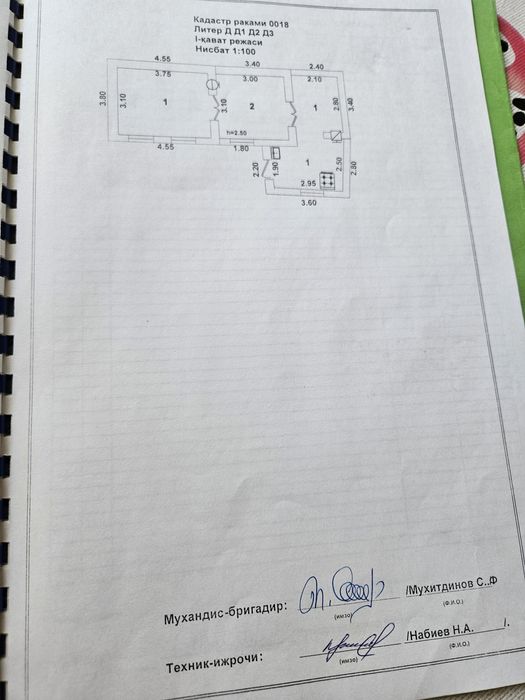 Кадастр раками 0018
Литер Д Д1 Д2 Д3
I-қават режаси
Нисбат 1:100
4.55 3.40 2.40
3.75 3.00 2.10
3.80 3.10 1 3.10 2 1 2.80 3.40
h=2.50
4.55 1.80
2.20 1.90 1 2.50 2.80
2.95
3.60
Мухандис-бригадир: /Мухитдинов С..Ф
(имзо) (Ф.И.О.)
Техник-ижрочи: /Набиев Н.А. /.
(имзо) (Ф.И.О.)